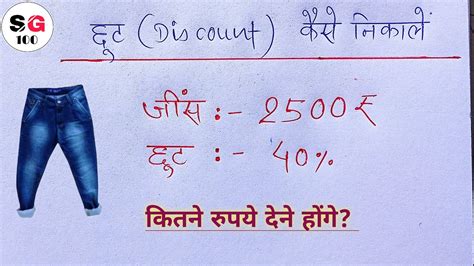 SG
100
छूट (Discount) कैसे निकालें
जींस :- 2500₹
छूट :- 40%
कितने रुपये देने होंगे?